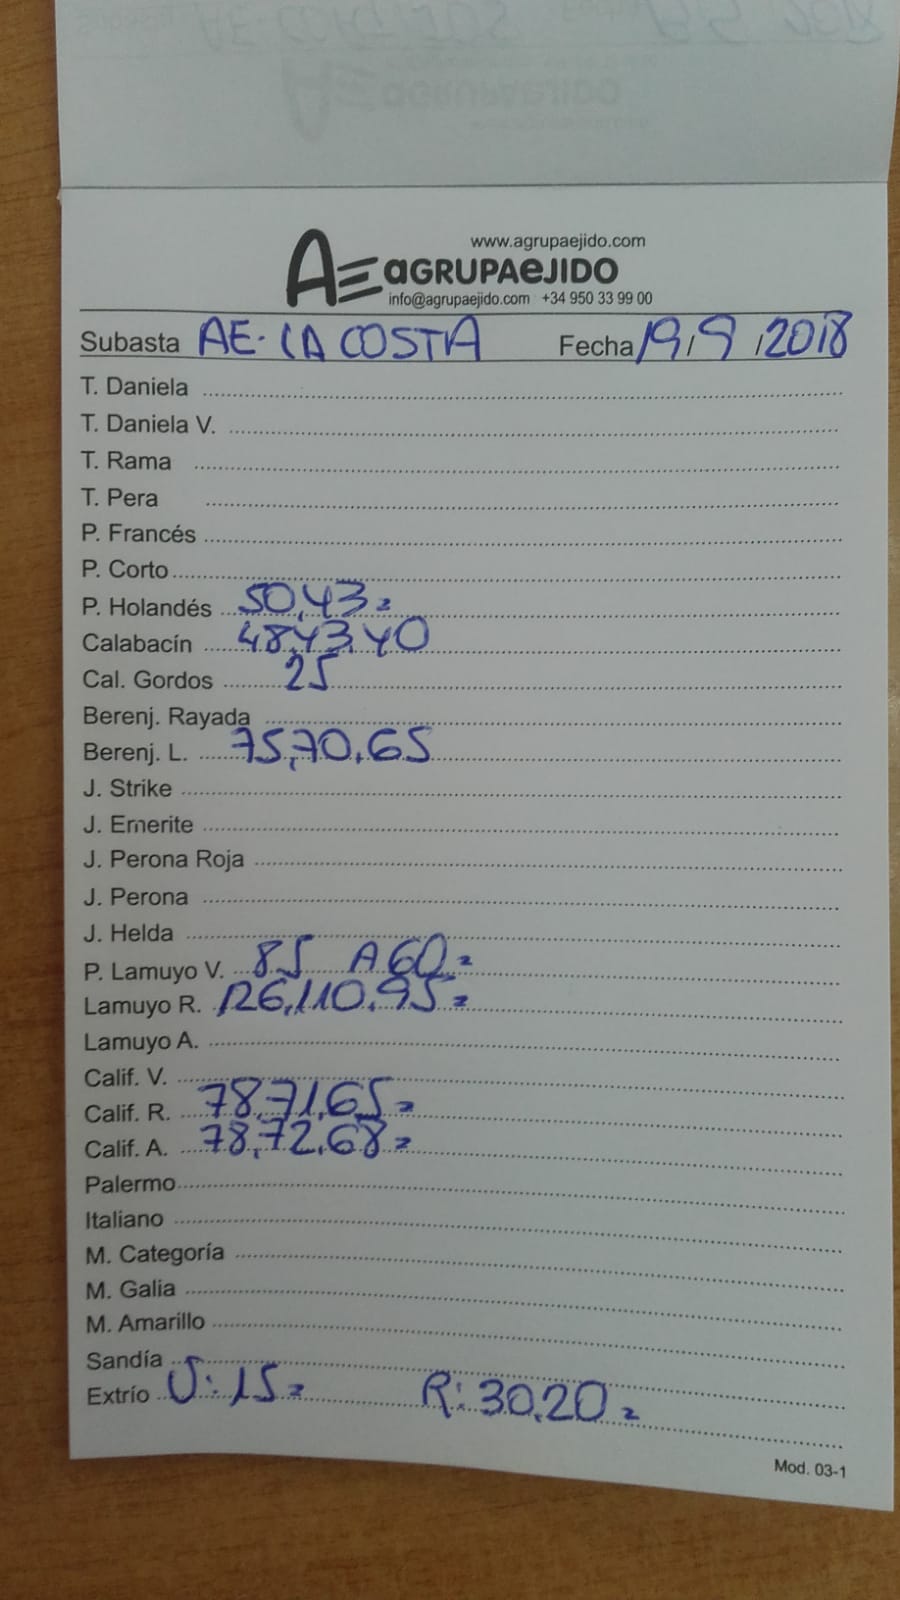 www.agrupaejido.com
AE aGRUPAeJIDO
info@agrupaejido.com +34 950 33 99 00
Subasta AE. LA COSTA Fecha 19/9/2018
T. Daniela
T. Daniela V.
T. Rama
T. Pera
P. Francés
P. Corto
P. Holandés 50,43
Calabacín 48,43,40
Cal. Gordos 25
Berenj. Rayada
Berenj. L. 75,70,65
J. Strike
J. Emerite
J. Perona Roja
J. Perona
J. Helda
P. Lamuyo V. 85 A 60
Lamuyo R. 126,110,95
Lamuyo A.
Calif. V.
Calif. R. 78,71,65
Calif. A. 78,72,68
Palermo
Italiano
M. Categoría
M. Galia
M. Amarillo
Sandía
Extrío V: 15 R: 30,20
Mod. 03-1